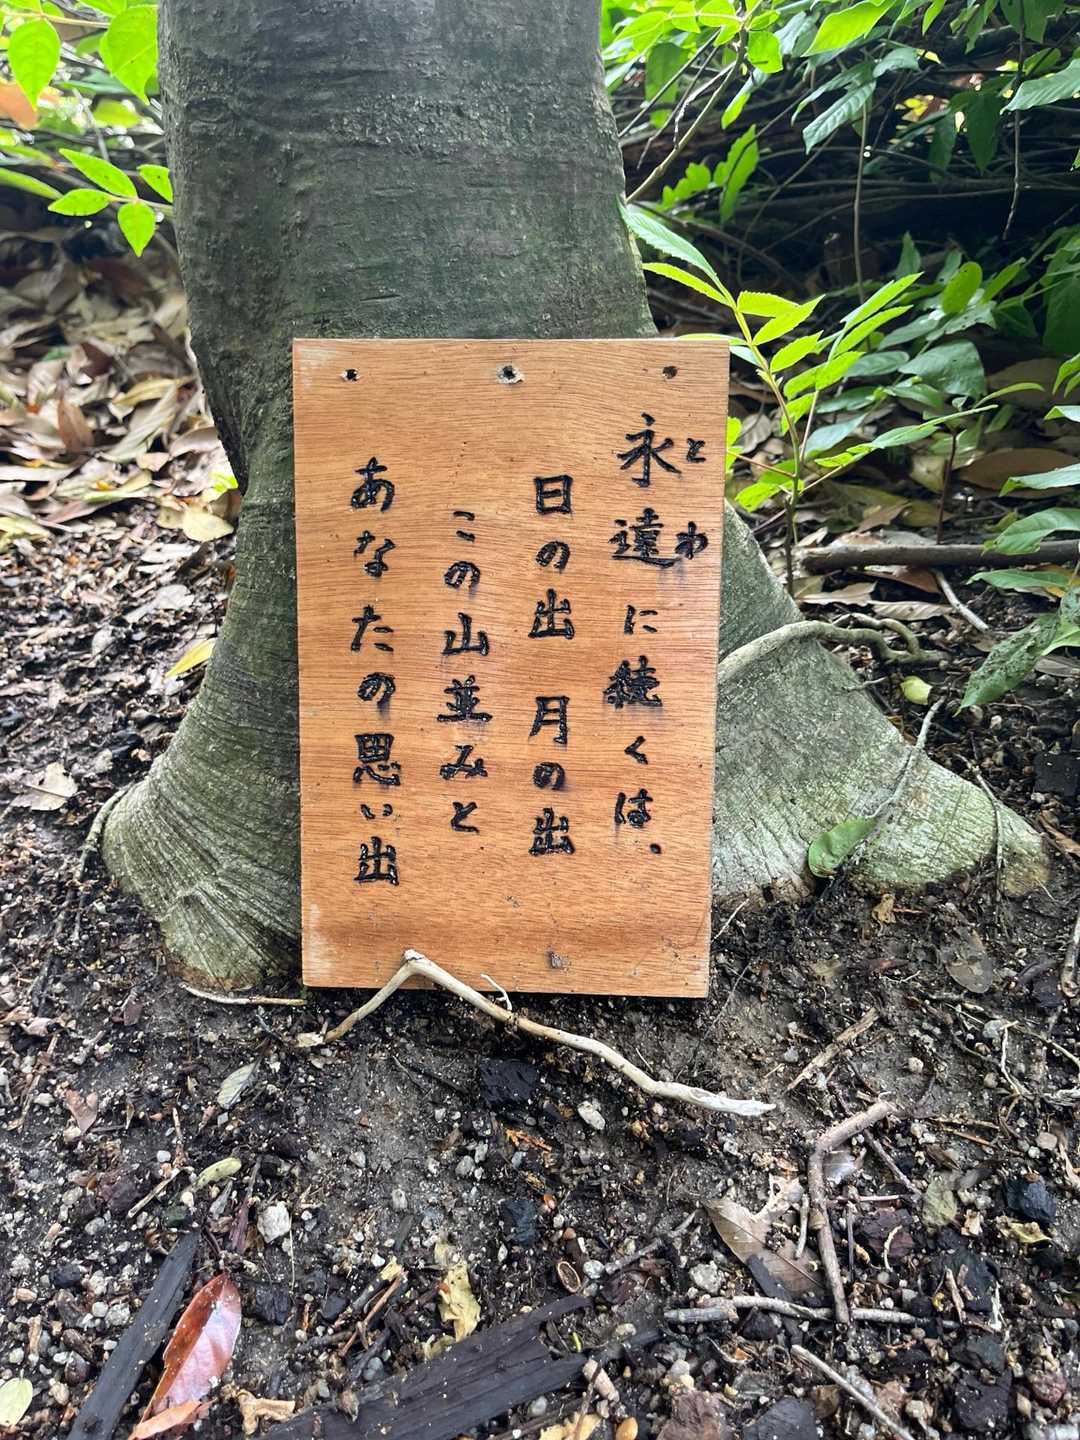 永遠に続くは、
とわ
日の出 月の出
この山並みと
あなたの思い出